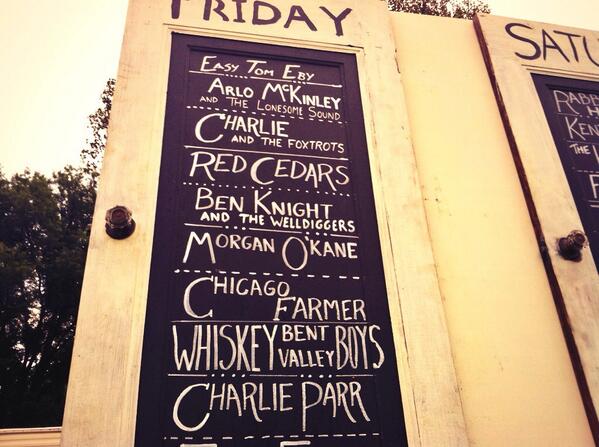 FRIDAY
EASY TOM EBY
ARLO MCKINLEY
AND THE LONESOME SOUND
CHARLIE
AND THE FOXTROTS
RED CEDARS
BEN KNIGHT
AND THE WELLDIGGERS
MORGAN O'KANE
CHICAGO
FARMER
WHISKEY BENT
VALLEY BOYS
CHARLIE PARR